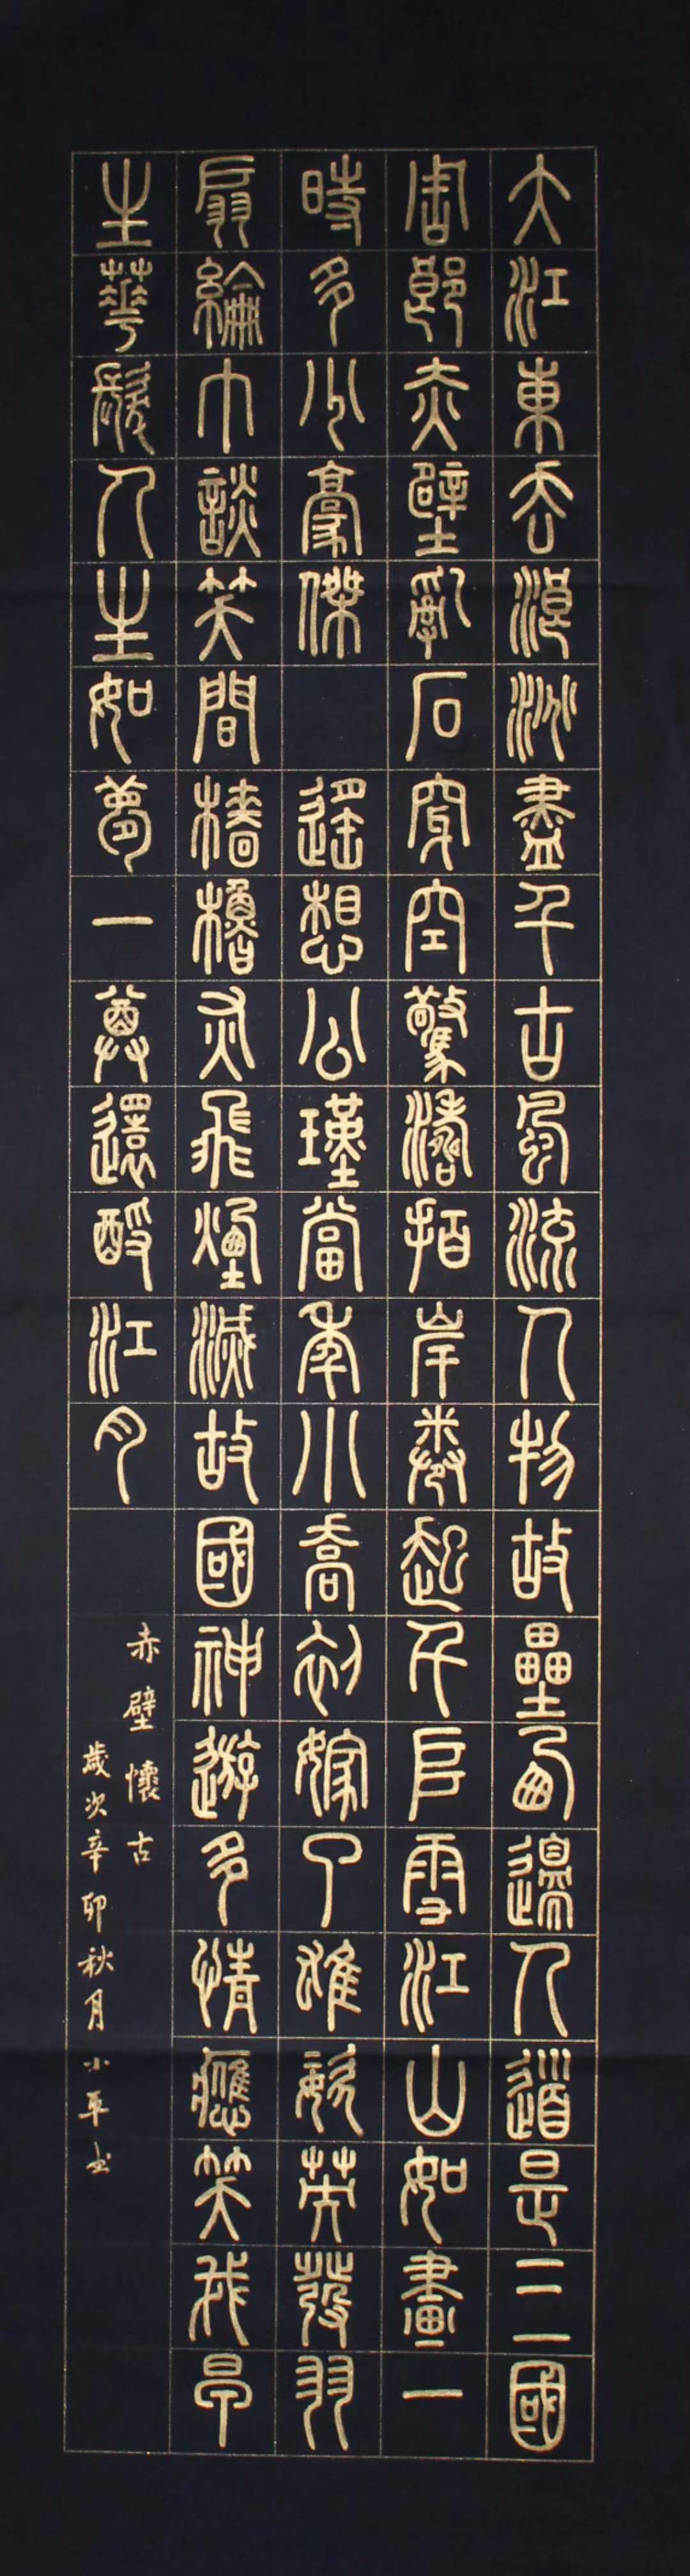 大江東去浪淘盡千古風流人物故壘西邊人道是三國
周郎赤壁亂石穿空驚濤拍岸卷起千堆雪江山如畫一
時多少豪傑 遙想公瑾當年小喬初嫁了雄姿英發羽
扇綸巾談笑間檣櫓灰飛煙滅故國神遊多情應笑我早
生華髮人生如夢一尊還酹江月
赤壁懷古
歲次辛卯秋月小平書